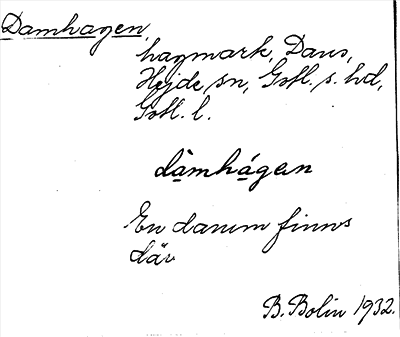 Damhagen,
hagmark, Daus,
Hejde sn, Gotl. s. hd,
Gotl. l.
dàmhágen
En damm finns
där
B. Bolin 1932.